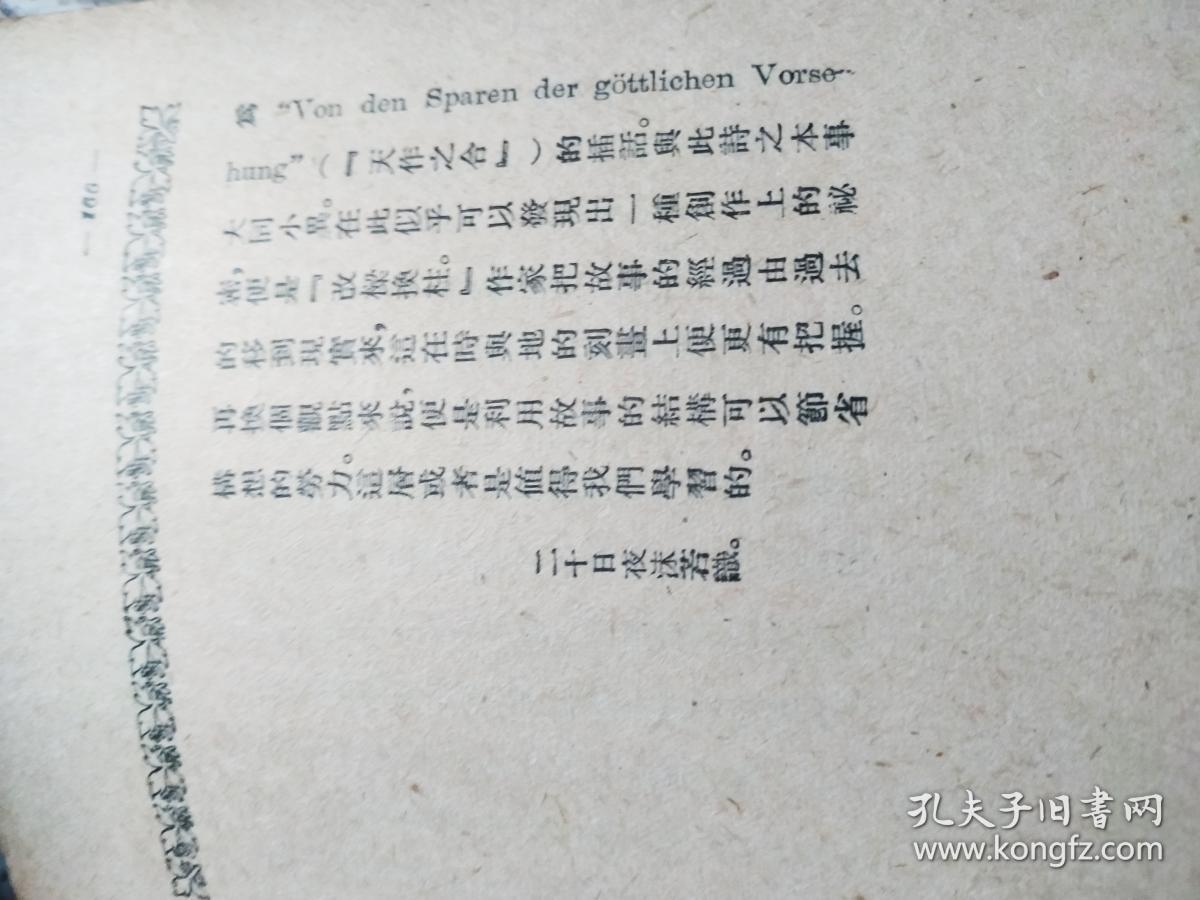 — 166 —
為 "Von den Sparen der göttlichen Vorse-
hung"(『天作之合』)的插話。與此詩之本事
大同小異。在此似乎可以發現出一種創作上的祕
密,便是『改樑換柱。』作家把故事的經過由過去
的移到現實來,這在時與地的刻畫上便更有把握。
再換個觀點來說,便是利用故事的結構可以節省
構想的勞力。這層或者是值得我們學習的。
二十日夜沫若識。
孔夫子旧書网
www.kongfz.com